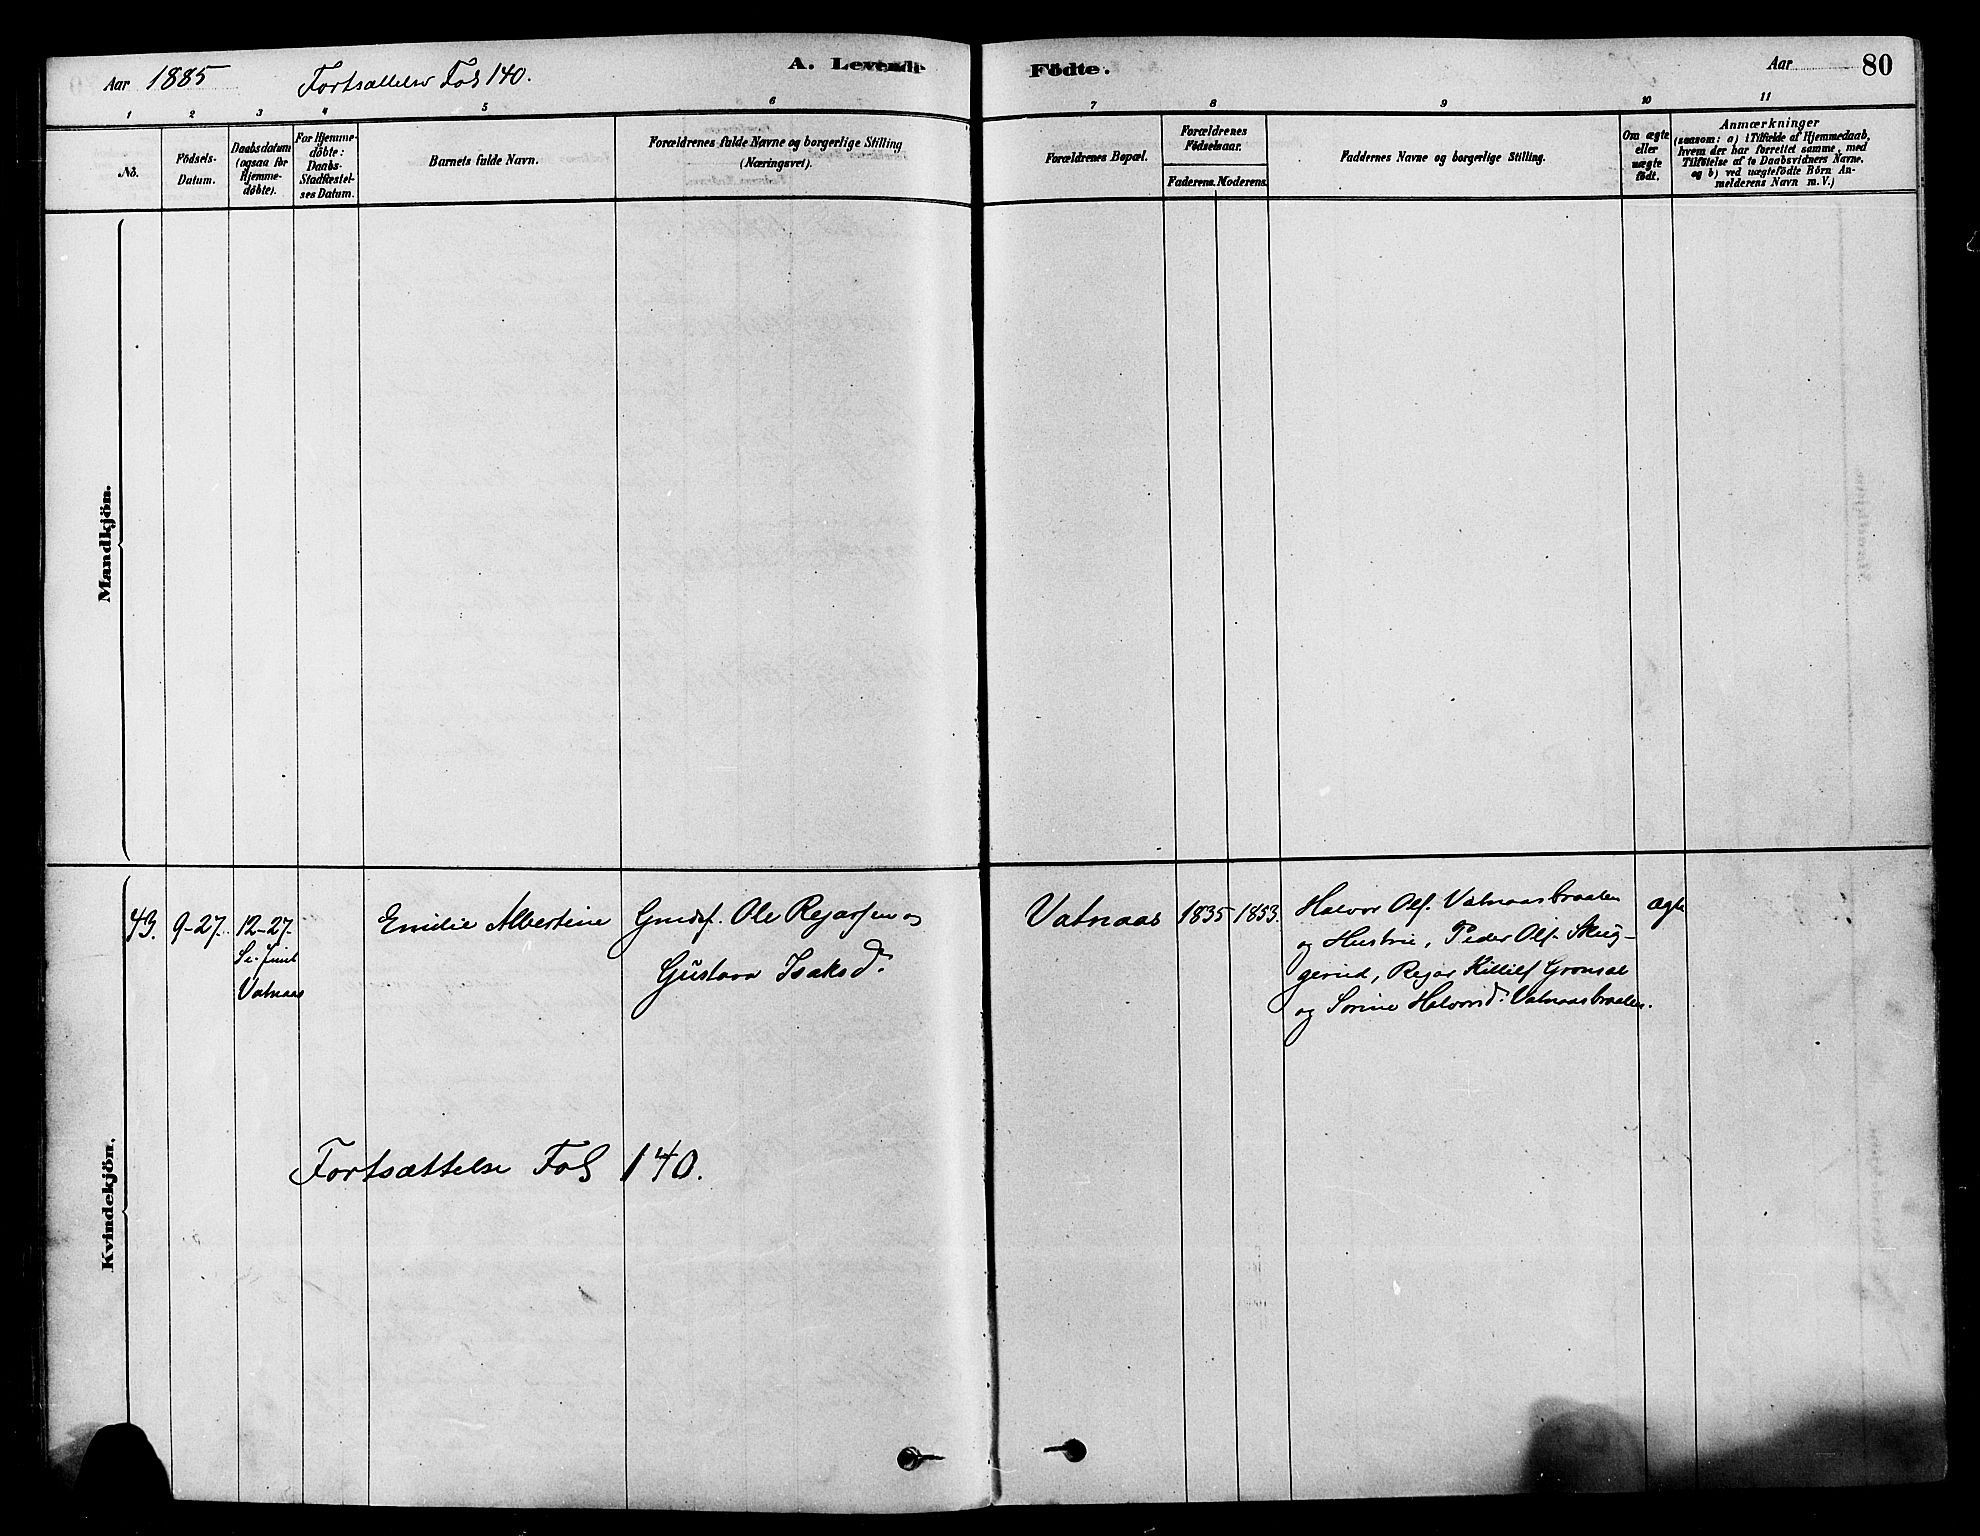 Aar 1885
Fortsættelse Fol 140.
A. Levende Födte.
Aar
80
1 2 3 4 5 6 7 8 9 10 11
No.
Födsels-
Datum.
Daabsdatum
(ogsaa for
Hjemme-
döbte).
For Hjemme-
döbte:
Daabs-
Stadfæstel-
ses Datum.
Barnets fulde Navn.
Forældrenes fulde Navne og borgerlige Stilling
(Næringsvei).
Forældrenes Bopæl.
Forældrenes
Födselsaar.
Faderens. Moderens.
Faddernes Navne og borgerlige Stilling.
Om ægte
eller
uægte
födt.
Anmærkninger
(saasom: a) i Tilfælde af Hjemmedaab,
hvem der har forrettet samme, med
Tilföielse af to Daabsvidners Navne.
og b) ved uægtefödte Börn An-
melderens Navn m. V.)
Mandkjön.
Kvindekjön.
43.
9-27.
12-27.
Vatnaas
Emilie Albertine
Ole Regarsen og
Gustava Isaksd.
Vatnaas
1835
1853.
Halvor Ols. Vatnaasbraaten
og Hustru, Peder Ols. Skug-
gerud, Regar Killils Gronsal
og Sorine Halvorsd. Vatnaasbraaten.
ægte
Fortsættelse Fol 140.